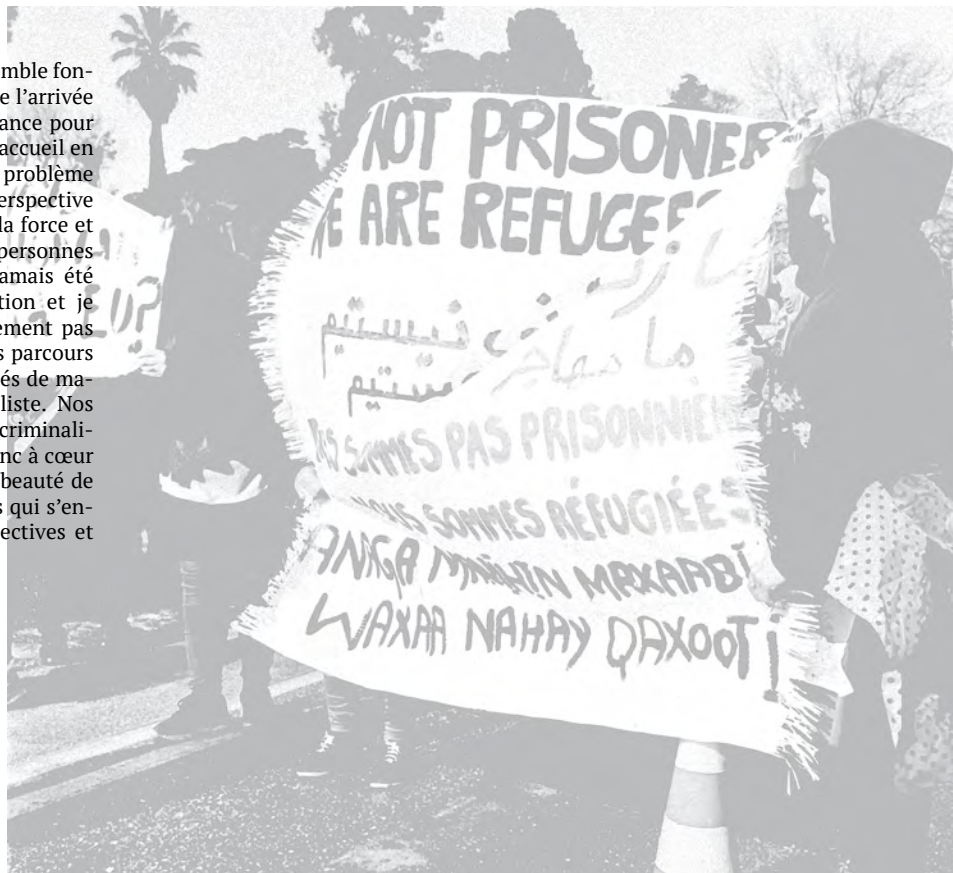 mble fon-
e l'arrivée
ance pour
accueil en
problème
erspective
la force et
personnes
amais été
tion et je
ement pas
s parcours
és de ma-
liste. Nos
criminali-
nc à cœur
beauté de
s qui s'en-
ectives et
EU?
NOT PRISONER
E ARE REFUGEES
نیستیم
ما مهاجر هستیم
SOMMES PAS PRISONNIE
NOUS SOMMES RÉFUGIÉES
MAXAABI
WAXAA NAHAY QAXOOTI